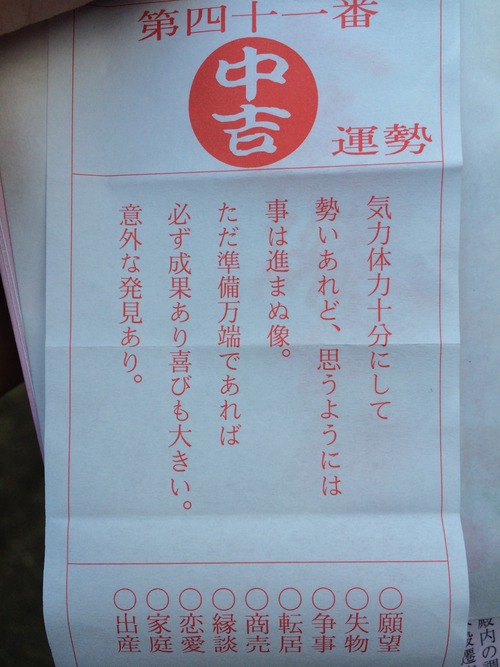 第四十一番
中吉
運勢
気力体力十分にして
勢いあれど、思うようには
事は進まぬ像。
ただ準備万端であれば
必ず成果あり喜びも大きい。
意外な発見あり。
○願望
○失物
○争事
○転居
○商売
○縁談
○恋愛
○家庭
○出産